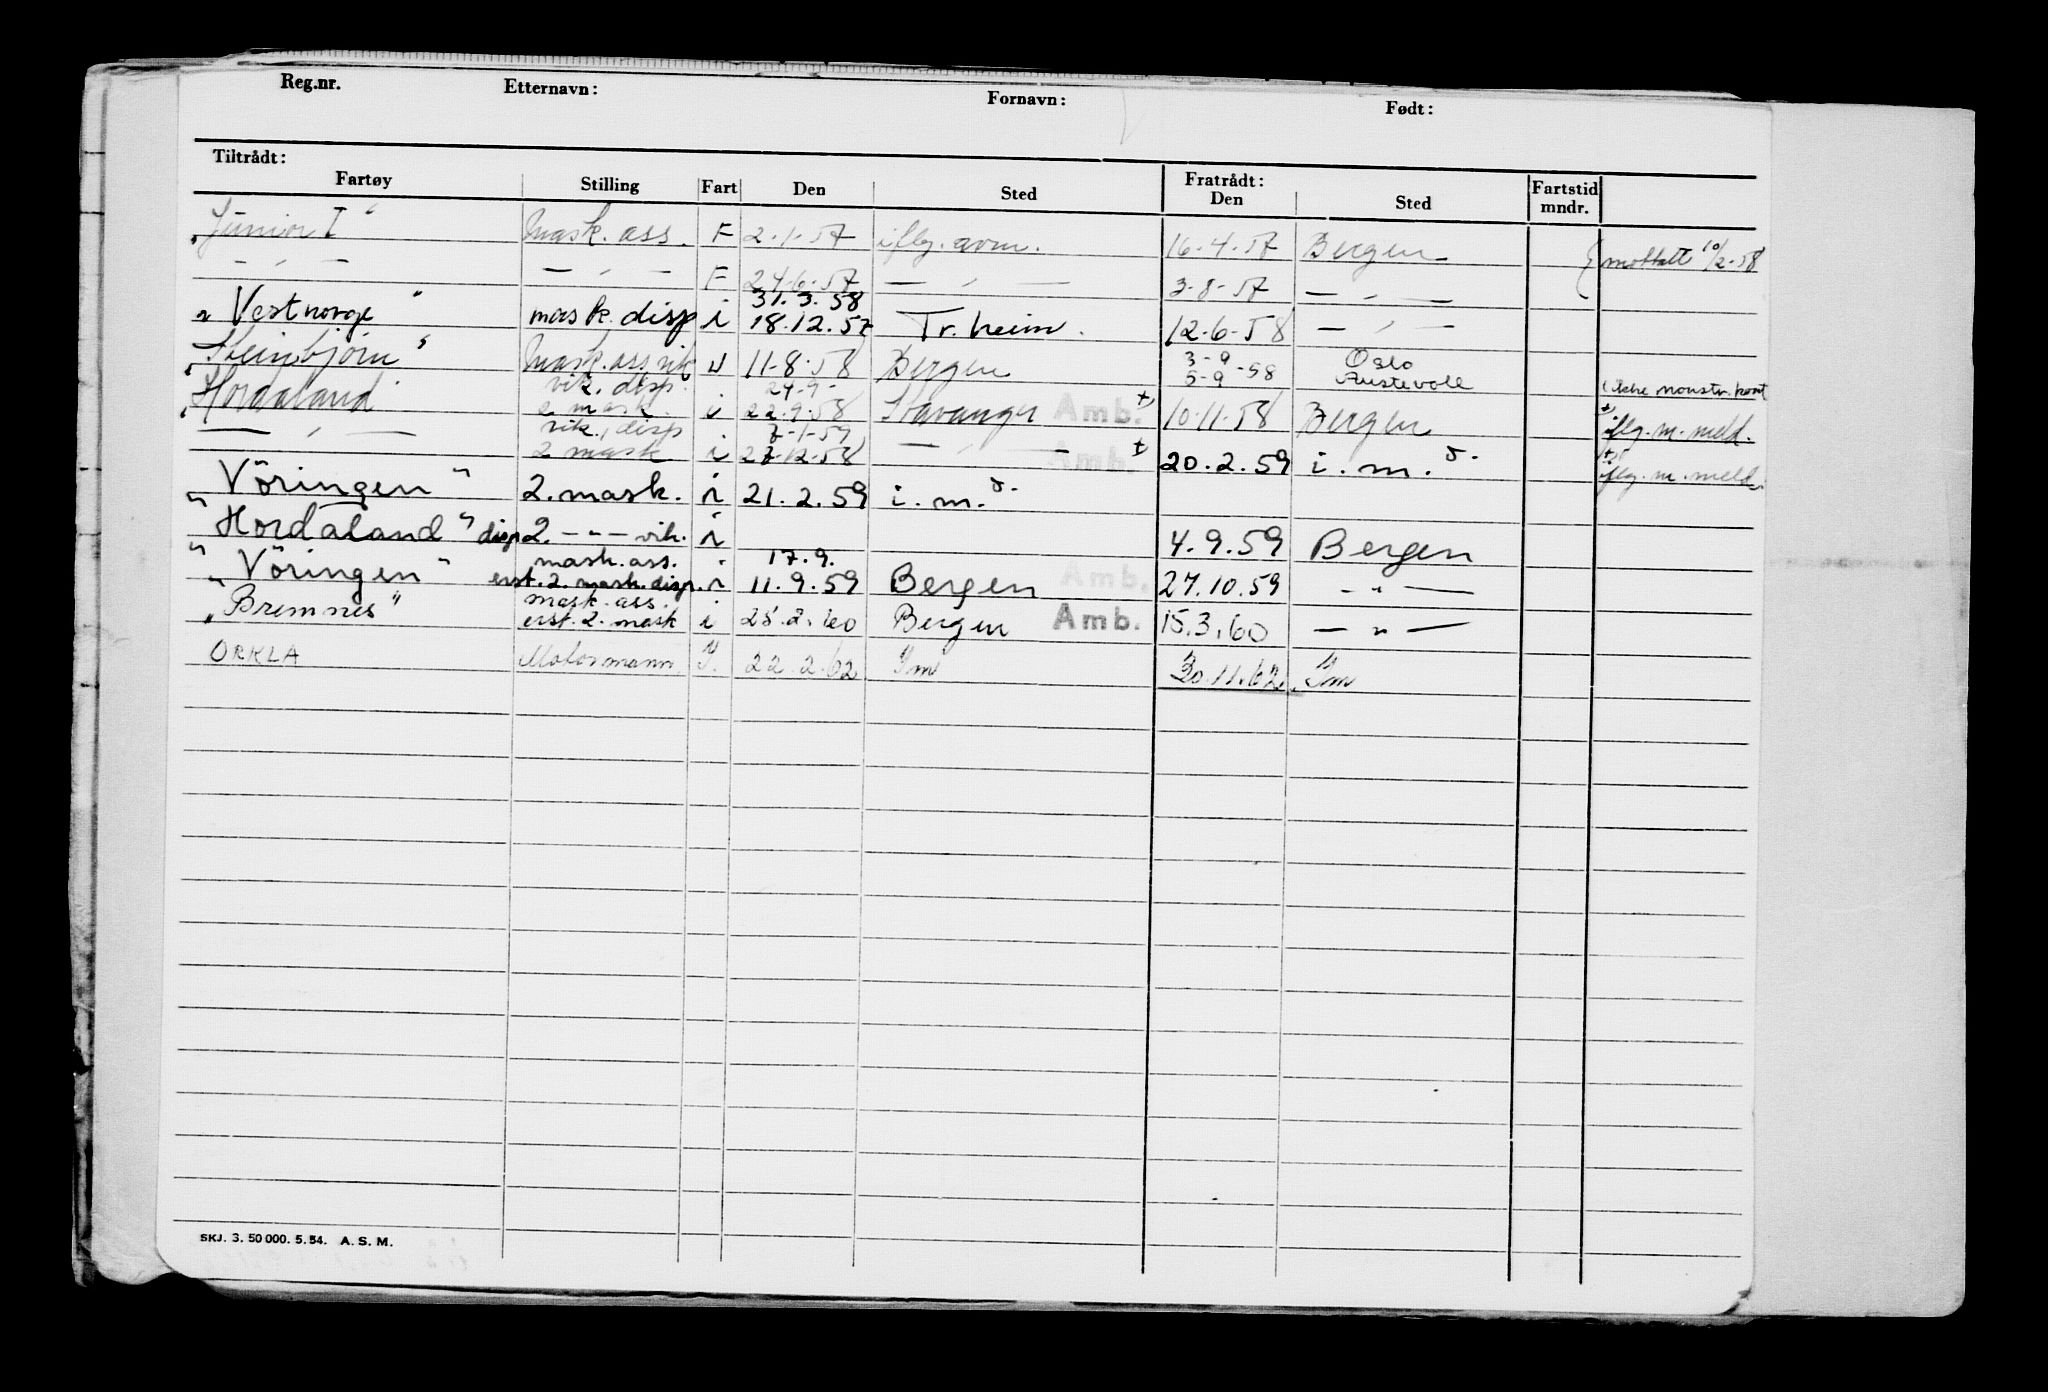 Reg.nr. Etternavn: Fornavn: Født:
Tiltrådt: Fratrådt:
Fartøy Stilling Fart Den Sted Den Sted Fartstid mndr.
"Junior I" Mask. ass. F 2-1-57 iflg. avm. 16-4-57 Bergen { mottatt 10/2-58
— " — — " — F 24-6-57 — " — 3-8-57 — " —
31.3.58
"Vestnorge" mask. disp i 18.12.57 Tr.heim. 12-6-58 — " —
3-9 Oslo
"Steinbjørn" Mask. ass. vik U 11-8-58 Bergen 5-9-58 Austevoll
vik. disp. 24-9- ikke mønstr. kont
"Hordaland 2 mask. i 22-9-58 Stavanger Amb. +) 10-11-58 Bergen +) iflg. m. meld.
vik., disp 7-1-59
— " — 2 mask i 27-12-58 — " — Amb. + 20.2.59 i. m. +) iflg. m. meld.
"Vöringen" 2. mask. i 21.2.59 i. m.
"Hordaland" disp 2. — " — vik. i 4.9.59 Bergen
mask. ass. 17.9.
"Vöringen" erst. 2. mask. disp. i 11.9.59 Bergen Amb. 27.10.59 — " —
mask. ass.
"Bremnes" erst. 2. mask i 25.2.60 Bergen Amb. 15.3.60 — " —
ORKLA Motormann I. 22.2.62 Im 30.11.62. Im
SKJ. 3. 50 000. 5. 54. A. S. M.